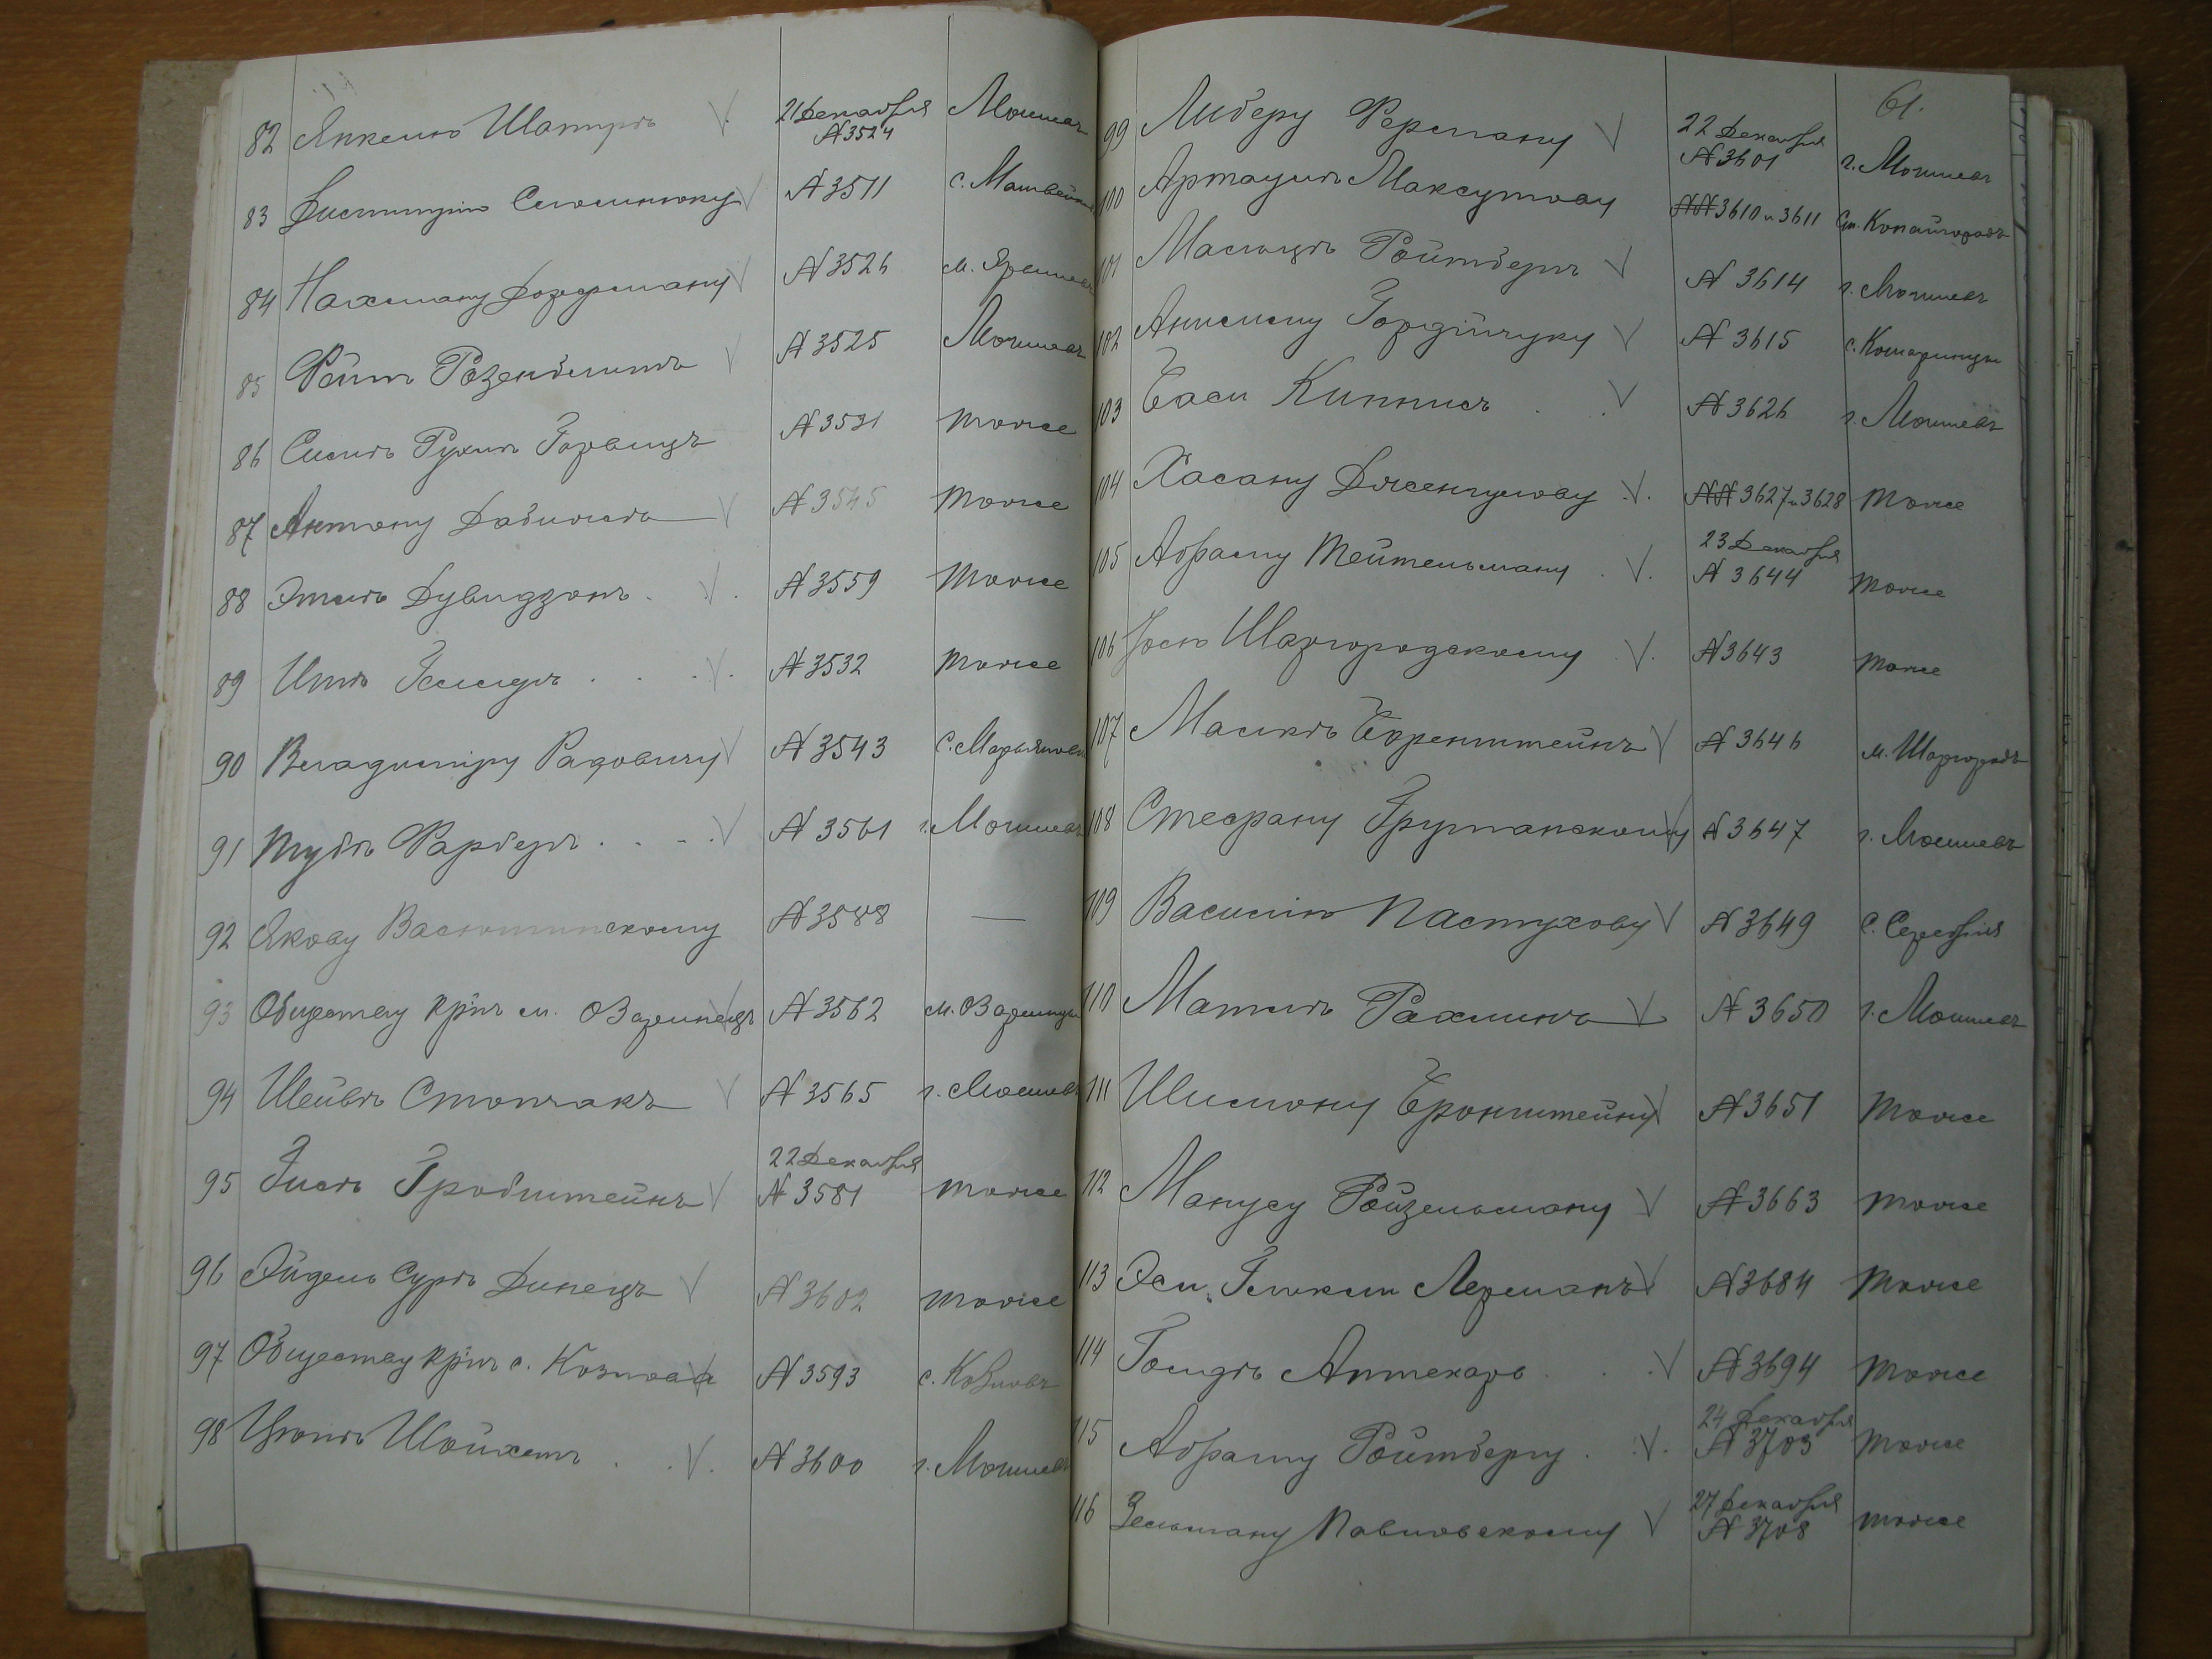 82 Янкелю Шапиръ 21 Декабря № 3524 Могилевъ
83 Димитрію Слюсинюку № 3511 с. Матвейк
84 Нахману Дозорману № 3526 м. Ярышевъ
85 Фейгѣ Розенблитъ № 3525 Могилевъ
86 Симѣ Рухлѣ Горвицъ № 3531 тоже
87 Антону Дабижѣ № 3545 тоже
88 Этлѣ Дувидзонъ № 3559 тоже
89 Итѣ Геллеръ № 3532 тоже
90 Владиміру Радовичу № 3543 с. Марьяновк
91 Тубѣ Фарберъ № 3561 г. Могилевъ
92 Якову Васютинскому № 3588 —
93 Обществу кр-нъ м. Озаринецъ № 3562 м. Озаринцы
94 Шейвѣ Стопчакъ № 3565 г. Могилевъ
95 Гисѣ Гробштейнъ 22 Декабря № 3581 тоже
96 Эйдель Сурѣ Динецъ № 3602 тоже
97 Обществу кр-нъ с. Козлова № 3593 с. Козловъ
98 Ципѣ Шойхетъ № 3600 г. Могилевъ
61.
99 Либеру Ферману 22 Декабря № 3601 г. Могилевъ
100 Артауллѣ Максутову №№ 3610 и 3611 ст. Копайгородъ
101 Мальцѣ Ройтберъ № 3614 г. Могилевъ
102 Анисиму Гордійчуку № 3615 с. Кошаринцы
103 Баси Кипнисъ № 3626 г. Могилевъ
104 Хасану Дженгулову №№ 3627 и 3628 тоже
105 Абраму Тейтельману 23 Декабря № 3644 тоже
106 Іосю Шаргородскому № 3643 тоже
107 Малкѣ Боренштейнъ № 3646 м. Шаргородъ
108 Стефану Грушанскому № 3647 г. Могилевъ
109 Василію Пастухову № 3649 с. Серебрія
110 Матлѣ Рахлинъ № 3650 г. Могилевъ
111 Шлиомну Бронштейну № 3651 тоже
112 Манусу Ройзельману № 3663 тоже
113 Эси Гликли Лерманъ № 3684 тоже
114 Гольдѣ Аптекарь № 3694 тоже
115 Абраму Ройтбергу 24 Декабря № 3703 тоже
116 Зельману Павловскому 27 Декабря № 3708 тоже